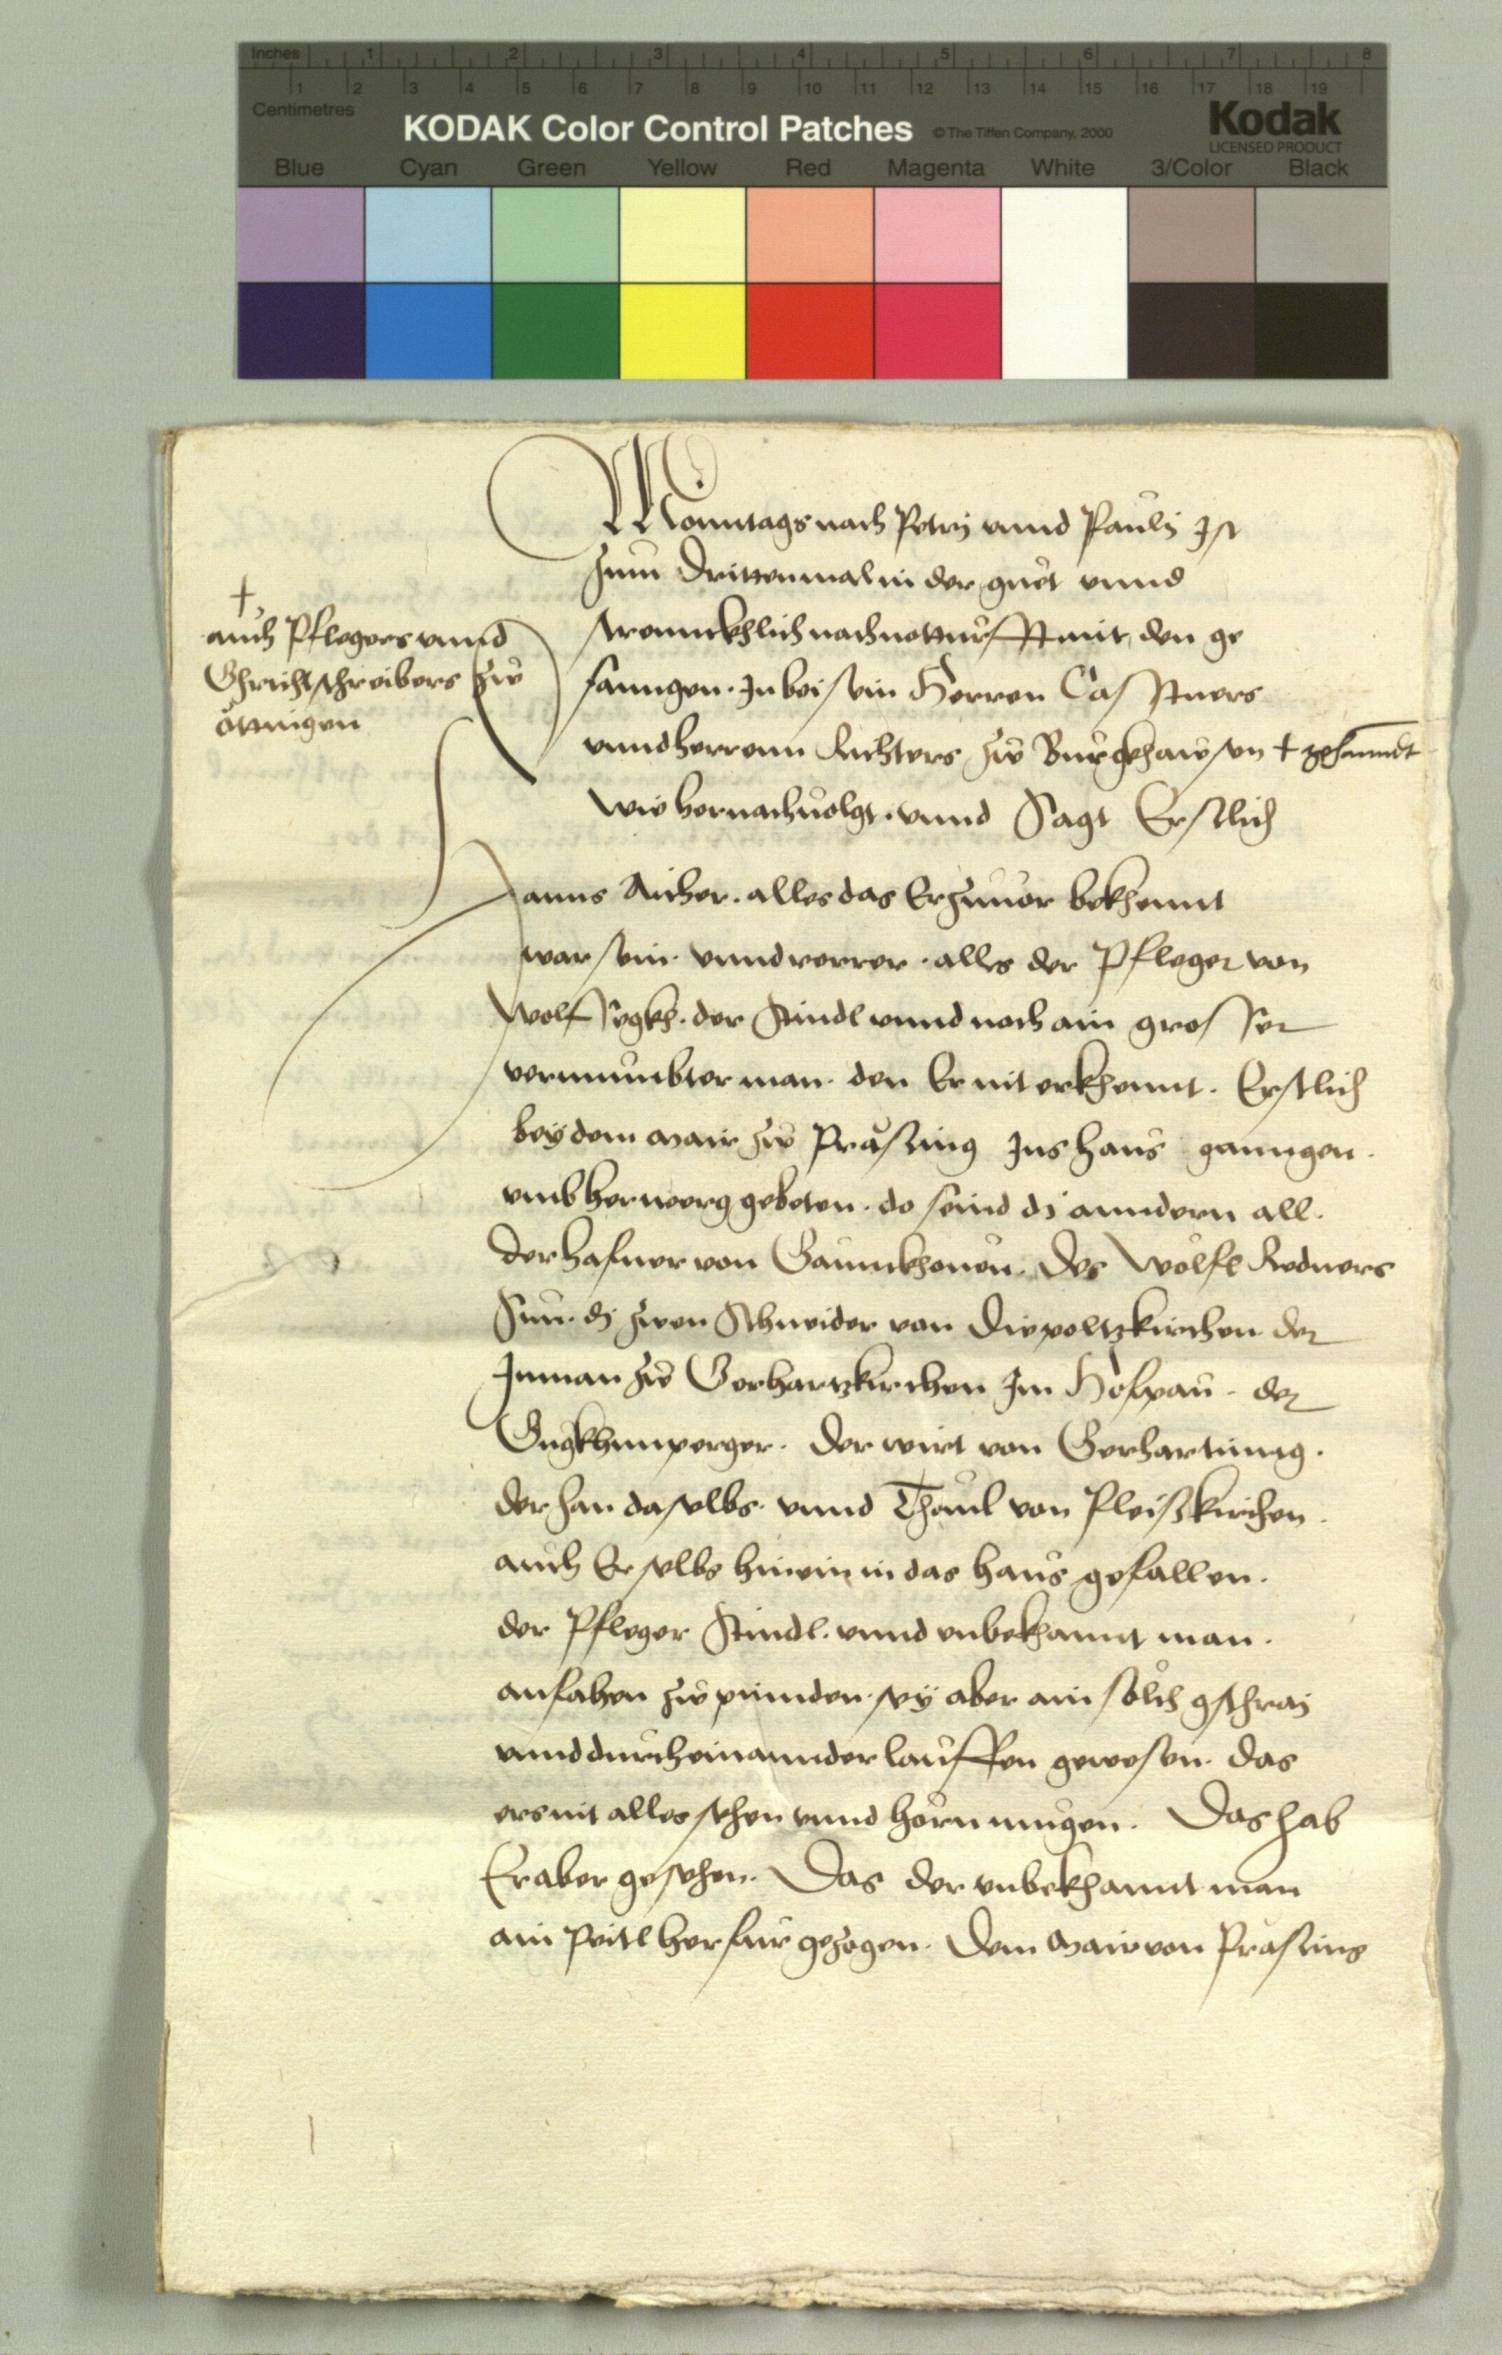 Inches 1 2 3 4 5 6 7 8
1 2 3 4 5 6 7 8 9 10 11 12 13 14 15 16 17 18 19
Centimetres
KODAK Color Control Patches © The Tiffen Company, 2000 Kodak
LICENSED PRODUCT
Blue Cyan Green Yellow Red Magenta White 3/Color Black
Monntags nach Petrj vnnd Paulj Ist
zum Drittenmal in der guet vnnd
strennckhlich nach notturfft mit den ge
fanngen. In beisein Herren Casstners
vnnd herrenn Richters zw Burgkhawsen +
+
auch Pflegers vnnd
Ghrichtschreibers zw
öttingen
wie hernachuolgt. vnnd Sagt Erstlich
Hanns Aicher. alles das Er zuuor bekhennt
war sein. vnnd verrer. alls der Pfleger von
Wolfsegkh. der Stindl vnnd noch ain grosser
vermumbter man. den Er nit erkhennt. Erstlich
bey dem Mair zw Präsing Ins haus ganngen.
vmb herwerg gebeten. do seind dj anndern all.
der hafner von Gaunkhouen. Des Wölfl Redners
Sun. dj zwen Schneider von Diepoltzkirchen der
Inman zw Gerhartzkirchen Im Hofpau. der
Gugkhnperger. Der wirt von Gerharting.
der han daselbs. vnnd Thoml von Pleiszkirchen.
auch Er selbs hinein in das haus gefallen.
der Pfleger Stindl. vnnd vnbekhannt man.
anfahen zw pinnden. sey aber ain sölch gschraj
vnnd durcheinannder lauffen gewesen. das
ers nit alles sehen vnnd hörn mügen. Das hab
Er aber gesehen. Das der vnbekhannt man
ain Peitl herfur gezogen. Dem Mair von Präsing